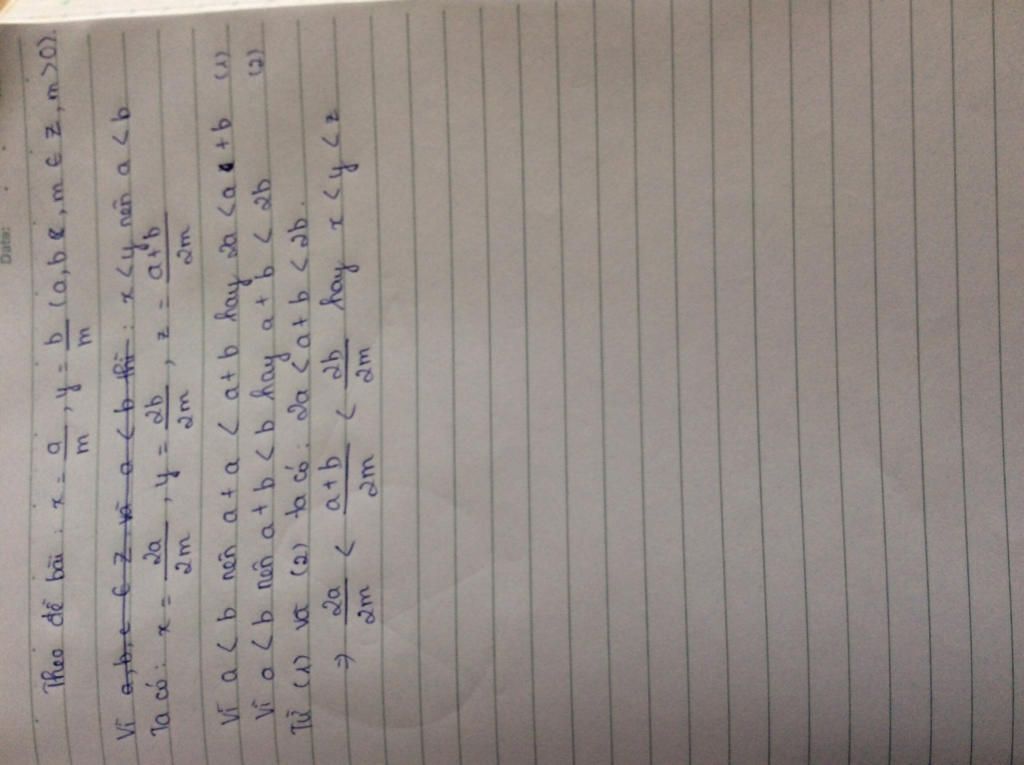 Date:
Theo đề bài : x = a/m , y = b/m (a, b ∈, m ∈ Z, m > 0).
Vì a, b, c ∈ Z và a < b thì : x < y nên a < b
Ta có : x = 2a/2m , y = 2b/2m , z = a+b/2m
Vì a < b nên a + a < a + b hay 2a < a + b (1)
Vì a < b nên a + b < b hay a + b < 2b (2)
Từ (1) và (2) ta có : 2a < a + b < 2b.
⇒ 2a/2m < a + b/2m < 2b/2m hay x < y < z